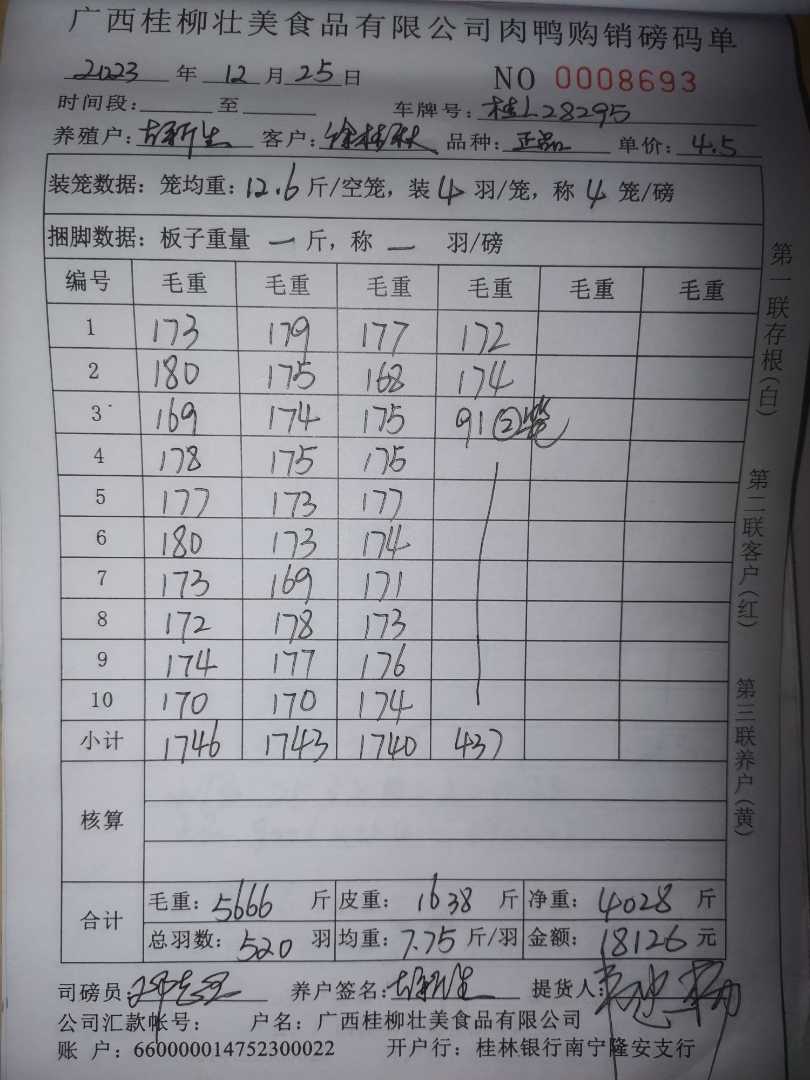 广西桂柳壮美食品有限公司肉鸭购销磅码单
2023 年 12 月 25 日 NO 0008693
时间段: 至 车牌号: 桂L28295
养殖户: 客户: 徐桂秋 品种: 正品 单价: 4.5
装笼数据: 笼均重: 12.6 斤/空笼, 装 4 羽/笼, 称 4 笼/磅
捆脚数据: 板子重量 一 斤, 称 一 羽/磅
编号 毛重 毛重 毛重 毛重 毛重 毛重
1 173 179 177 172
2 180 175 168 174
3 169 174 175 91 ②笼
4 178 175 175
5 177 173 177
6 180 173 174
7 173 169 171
8 172 178 173
9 174 177 176
10 170 170 174
小计 1746 1743 1740 437
核算
合计
毛重: 5666 斤 皮重: 1638 斤 净重: 4028 斤
总羽数: 520 羽 均重: 7.75 斤/羽 金额: 18126 元
司磅员: 养户签名: 提货人:
公司汇款帐号: 户名: 广西桂柳壮美食品有限公司
账 户: 660000014752300022 开户行: 桂林银行南宁隆安支行
第一联存根(白)
第二联客户(红)
第三联养户(黄)